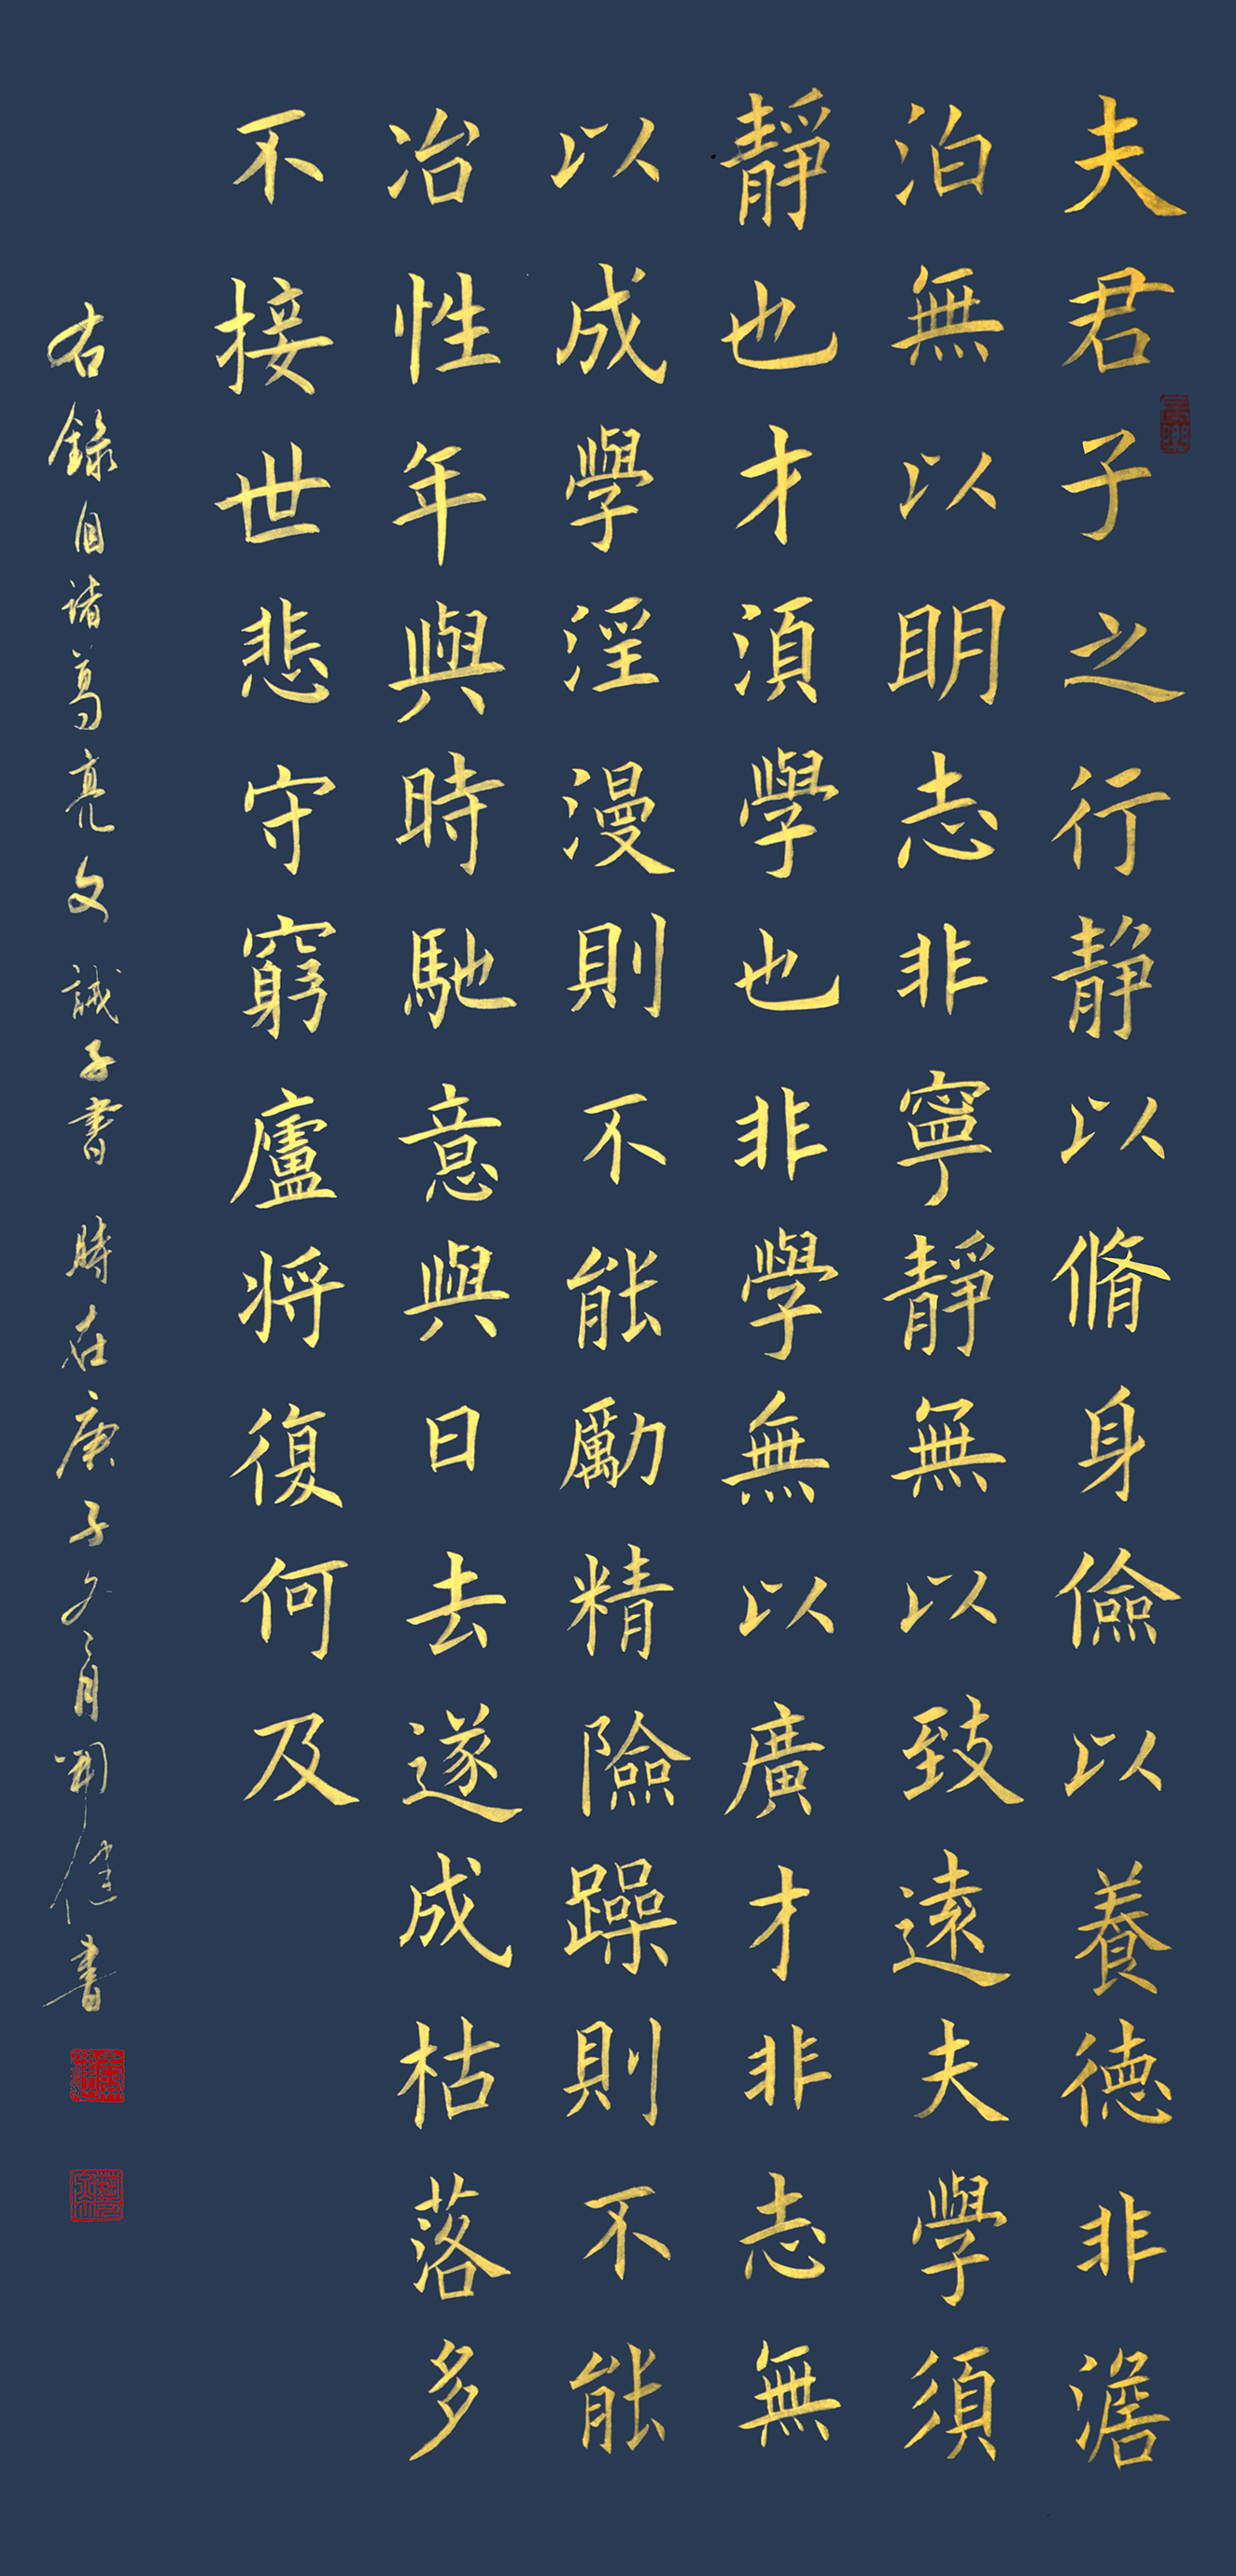 夫君子之行静以脩身儉以養徳非澹
泊無以眀志非寧靜無以致遠夫學須
靜也才湏學也非學無以廣才非志無
以成學淫漫則不能勵精險躁則不能
冶性年與時馳意與日去遂成枯落多
不接世悲守窮廬将復何及
右錄自諸葛亮文 誡子書 時在庚子冬月開健書